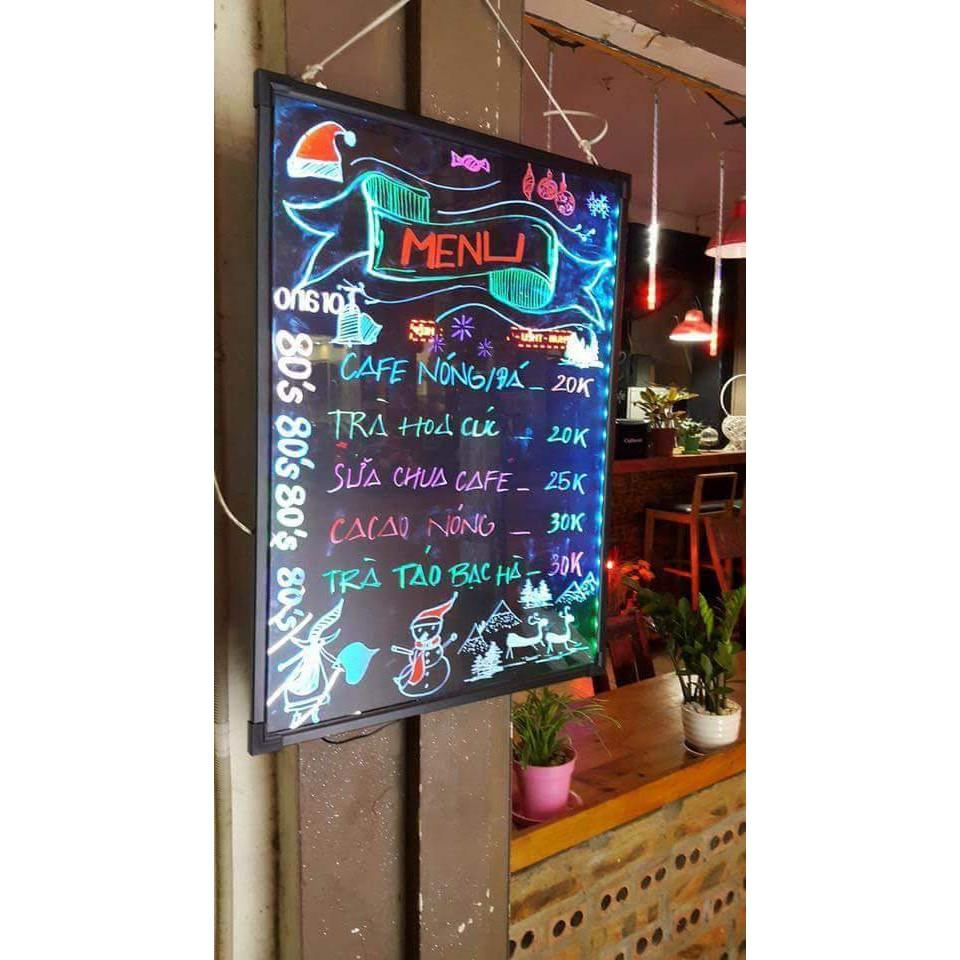 MENU
Torano
80's 80's 80's 80's
CAFE NÓNG/ĐÁ _ 20K
TRÀ HOA CÚC _ 20K
SỮA CHUA CAFÉ _ 25K
CACAO NÓNG _ 30K
TRÀ TÁO BẠC HÀ _ 30K